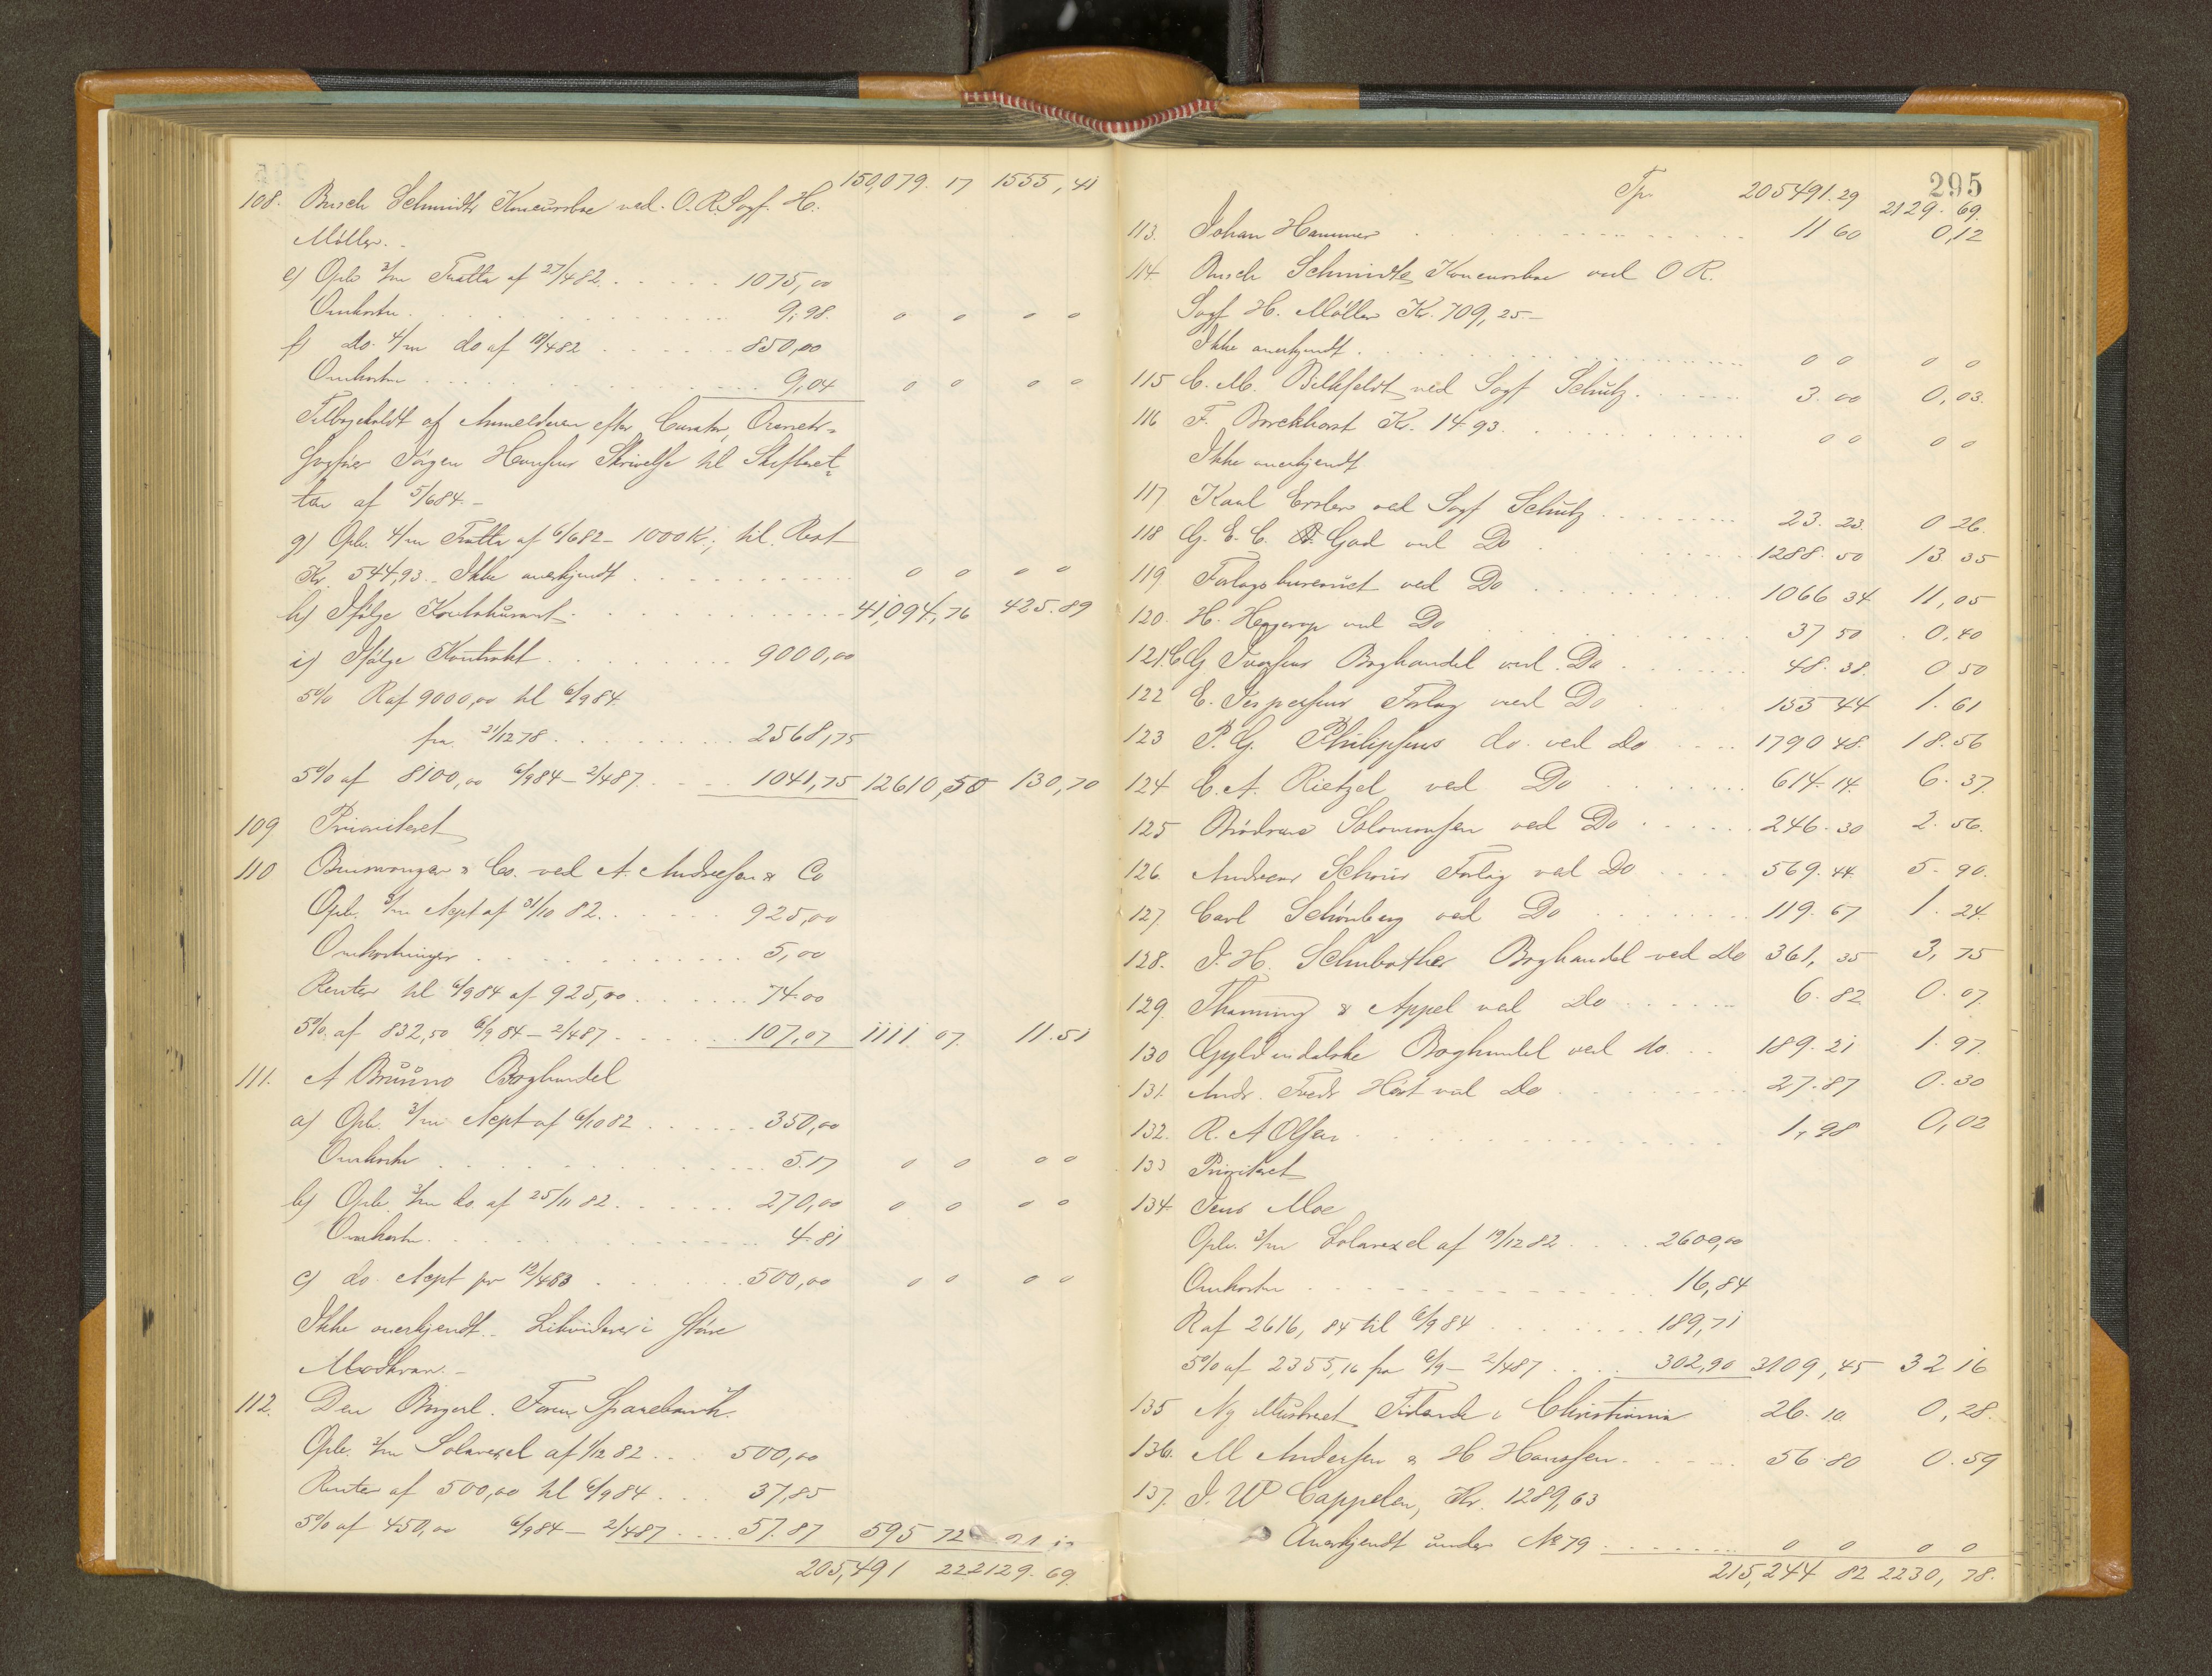 150,079. 17 1555,41
108. Busch Schmidts Koncursbo ved O. R. Sagf. H.
Möller. -
e) Opb 3/m Tratte af 27/4 82 . . . . . 1075,00
Omkostn. . . . . 9,98. 0 0 0 0
f) do. 4/m do af 18/4 82 . . . . . 850,00
Omkostn . . . . . 9,04 0 0 0 0
Tilbageholdt af Anmelderen efter Curator, Overrets-
sagfører Jörgen Hansens Skrivelse til Skifteret-
ten af 5/6 84. -
g) Opb. 4/m Tratte af 6/6 82 - 1000 K; til Rest
Kr. 544,93. - Ikke anerkjendt . . . . . 0 0 0 0
h) Ifølge Kontokurant . . . . . 41,094,76 425.89
i) Ifølge Kontrakt . . . . . 9000,00
5% R af 9000,00 til 6/9 84
fra 21/12 78 . . . . . 2568,75
5% af 8100,00 6/9 84 - 2/4 87 . . . 1041,75 12610,50 130,70
109 Prioriteret
110 & Co. ved A. Andresen & Co
Opb. 3/m Acpt af 31/10 82 . . . . . 925,00
Omkostninger . . . . . 5,00
Renter til 6/9 84 af 925,00 . . . . . 74.00
5% af 832,50 6/9 84 - 2/4 87 . . . . . 107,07 1111 07 11.51
111. A Bruuns Boghandel
a) Opb. 3/m Acpt af 6/10 82 . . . . . 350,00
Omkostn . . . . . 5.17 0 0 0 0
b) Opb. 3/m do. af 25/11 82 . . . . . 270,00 0 0 0 0
Omkostn. . . . . 4.81
c) do. Acpt pr 12/4 83 . . . . . 500,00 0 0 0 0
Ikke anerkjendt. - Likvideres i större
Modkrav. -
112. Den Borgerl. Foren. Sparebank.
Opb. 3/m Solavexel af 1/12 82 . . . 500,00
Renter af 500,00 til 6/9 84 . . . 37,85
5% af 450,00 6/9 84 - 2/4 87 . . . . 57.87 595 72
205,491 22 2129. 69.
295
Tp. 205491.29 2129. 69.
113. Johan Hammer . . . . . 11 60 0,12
114. Busch Schmidts Koncursbo ved O R.
Sagf H. Möller Kr. 709,25. -
Ikke anerkjendt . . . . . 0 0 0 0
115 C. M. ved Sagf Schutz . . . . . 3. 00 0,03.
116 F. Borckhorst Kr. 14.93 . . . . . 0 0 0 0
Ikke anerkjendt
117 Karl Erslev ved Sagf Schutz . . . . . 23. 23. 0 26.
118 G. E. C. Gad ved Do . . . . . 1288. 50 13 35
119 Forlagsbureauet ved Do . . . . . 1066 34 11,05
120. H. Hagerup ved Do . . . . . 37 50 0,40
121. C G. Iversens Boghandel ved Do . . . . . 48. 38. 0 50
122 E. Jespersens Forlag ved Do . . . . . 155 44 1. 61
123 P. G. Philipsens do. ved do . . . . 1790 48. 18.56
124 C. A. Rietzel ved Do . . . . . 614. 14. 6. 37.
125 Brödrene Salomonsen ved Do . . . . . 246. 30 2. 56.
126. Andreas Schous Forlag ved Do . . . . 569. 44. 5. 90.
127. Carl Schönberg ved Do . . . . . 119. 67 1. 24.
128. J. H. Schubothes Boghandel ved Do 361, 35 3, 75
129. Thaning & Appel ved Do . . . . . 6. 82 0. 07.
130 Gyldendalske Boghandel ved do. . . 189. 21 1. 97.
131. Andr. Fredr Höst ved Do . . . . . 27. 87 0. 30
132. R. A Olsen . . . . . 1,98 0,02
133 Prioriteret
134. Jens Moe
Opb. 3/m Solavexel af 19/12 82 . . . . 2600,00
Omkostn . . . . . 16,84
R af 2616, 84 til 6/9 84 . . . . . 189,71
5% af 2355,16 fra 6/9 - 2/4 87 . . . . 302,90 3109,45 32 16
135 Ny Illustreret Tidende i Christiania 26. 10. 0,28.
136. M Andersen & H Hanssen . . . . . 56. 80 0. 59
137. J. W Cappelen, Kr. 1289,63
Anerkjendt under No 79 . . . . . 0 0 0 0
215,244 82 2230, 78.